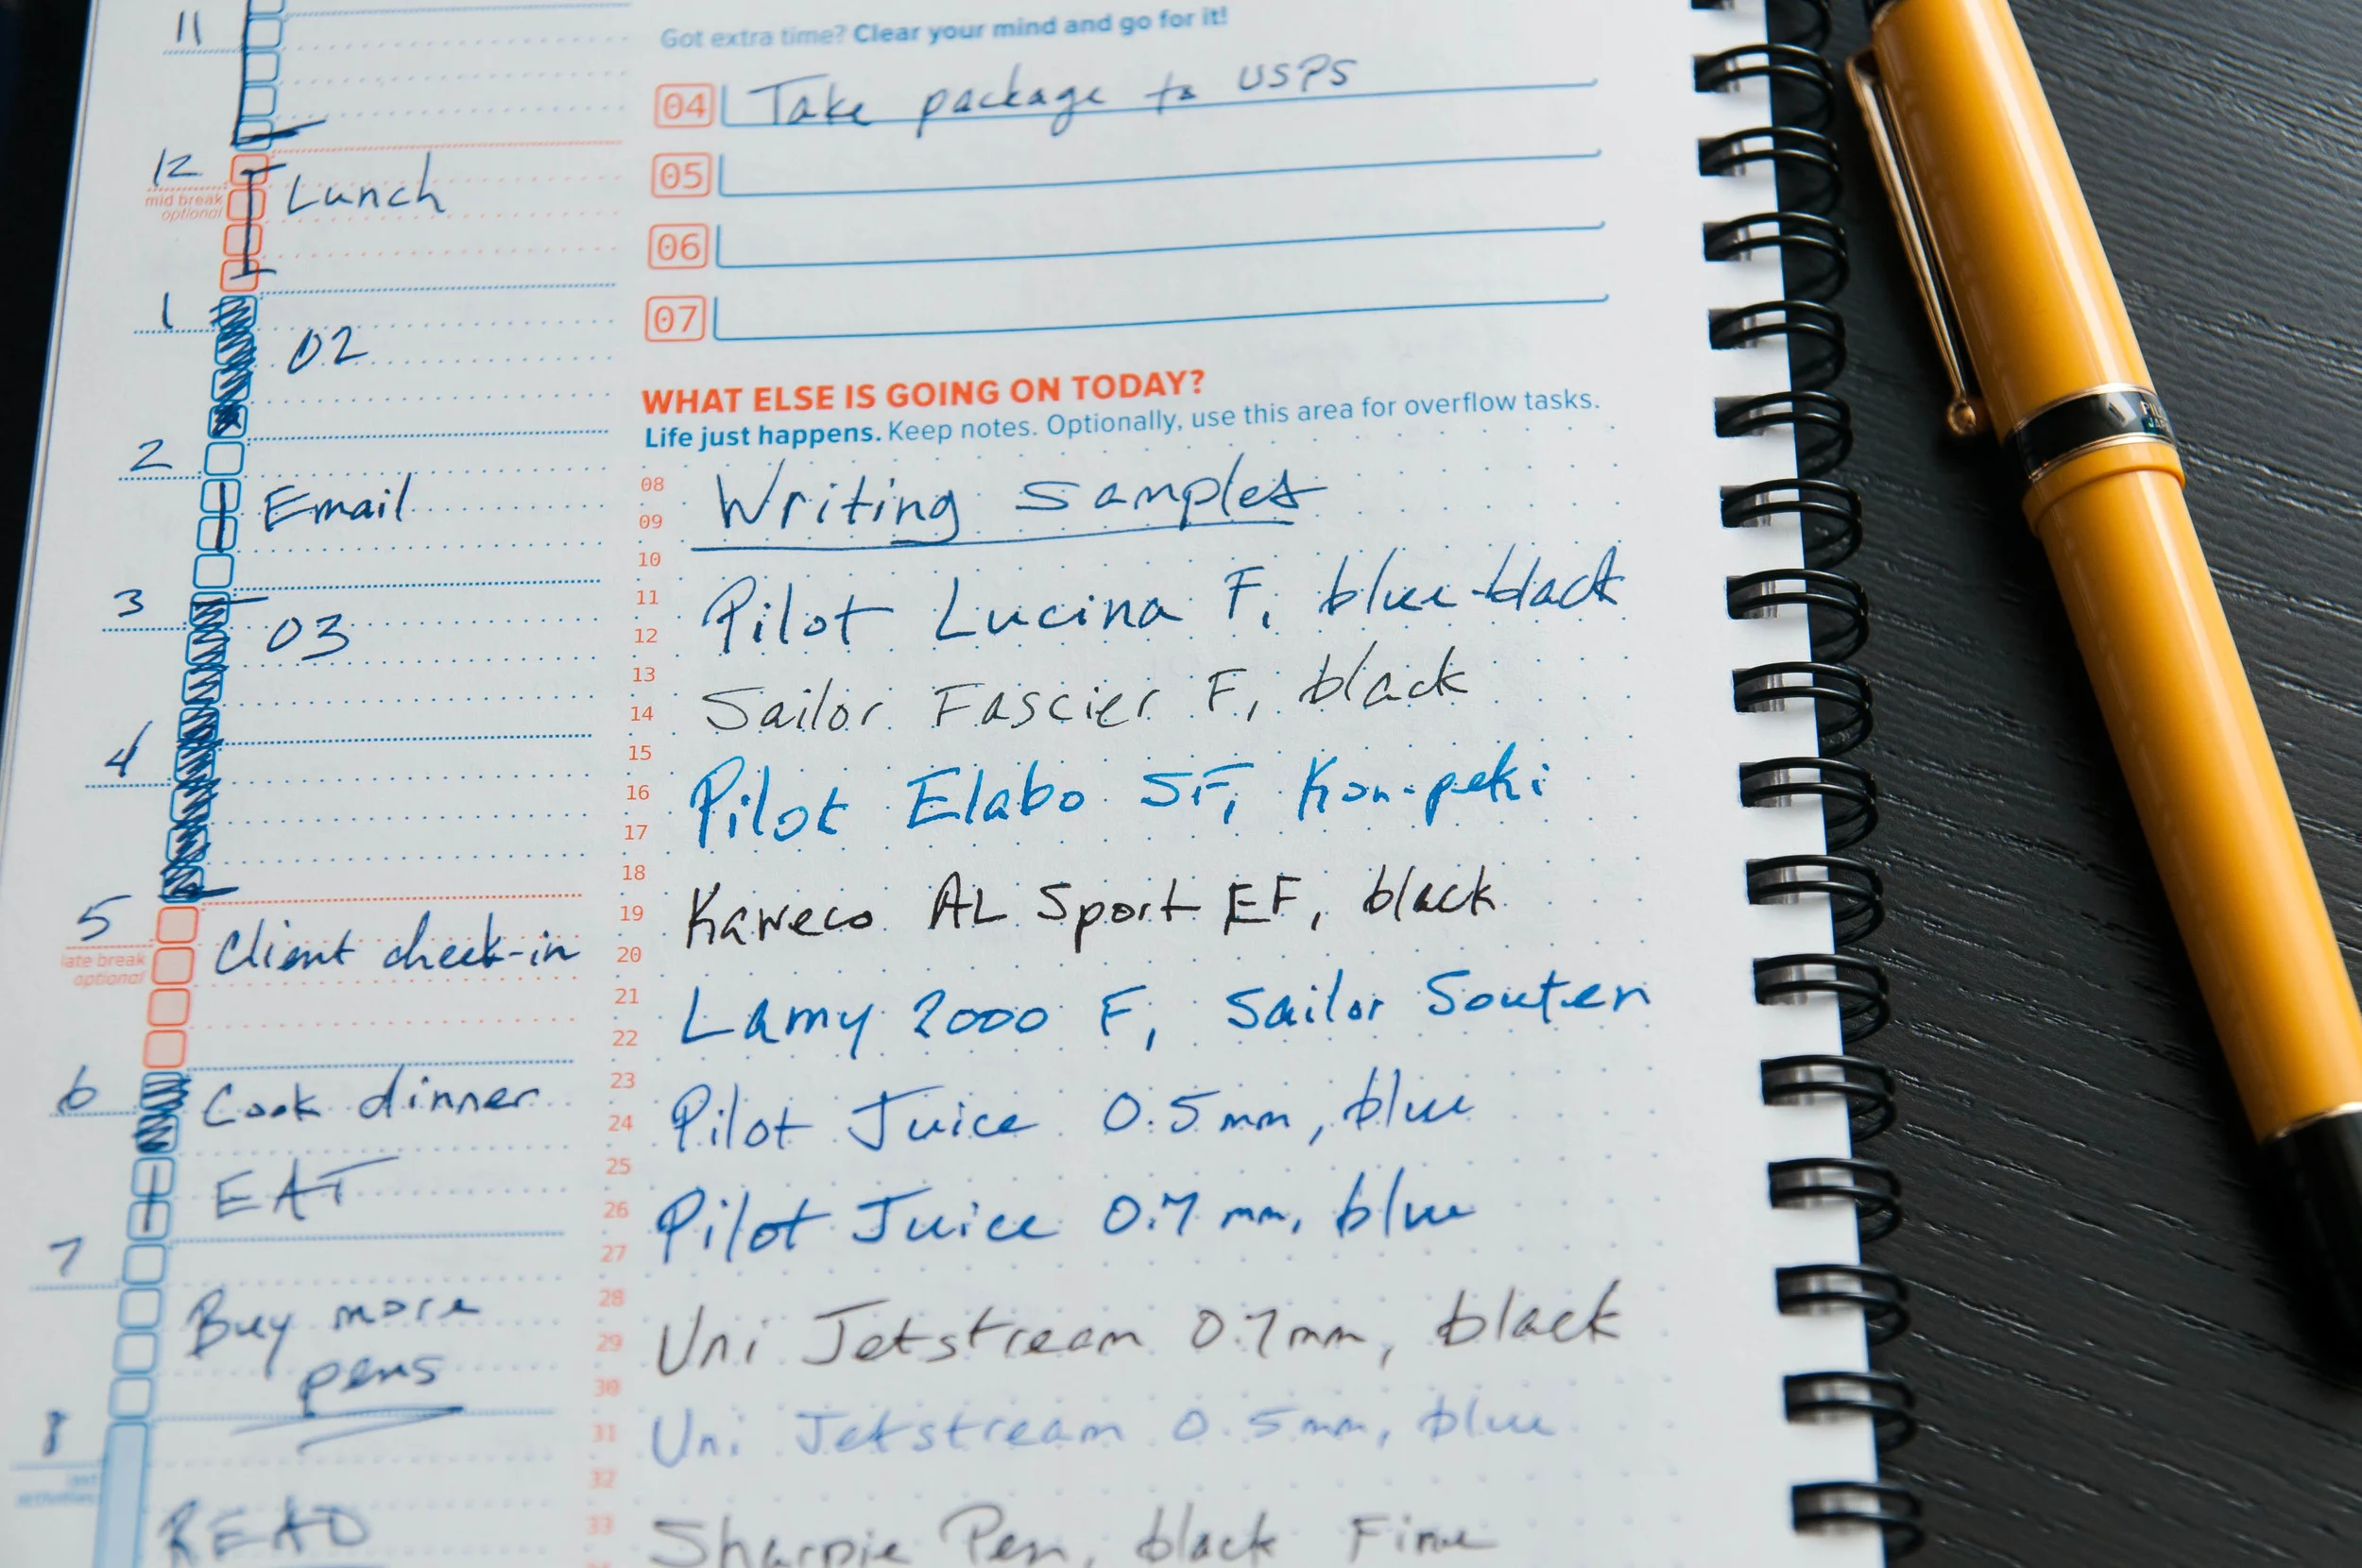 11
12
mid break
optional
Lunch
1
02
2
Email
3
03
4
5
late break
optional
Client check-in
6
Cook dinner
EAT
7
Buy more
pens
8
READ
Got extra time? Clear your mind and go for it!
04 Take package to USPS
05
06
07
WHAT ELSE IS GOING ON TODAY?
Life just happens. Keep notes. Optionally, use this area for overflow tasks.
08
Writing samples
09
10
11
Pilot Lucina F, blue-black
12
13
Sailor Fascier F, black
14
15
16
Pilot Elabo SF, Kon-peki
17
18
19
Kaweco AL Sport EF, black
20
21
Lamy 2000 F, Sailor Souten
22
23
24
Pilot Juice 0.5mm, blue
25
26
Pilot Juice 0.7 mm, blue
27
28
29
Uni Jetstream 0.7mm, black
30
31
Uni Jetstream 0.5mm, blue
32
33
Sharpie Pen, black Fine